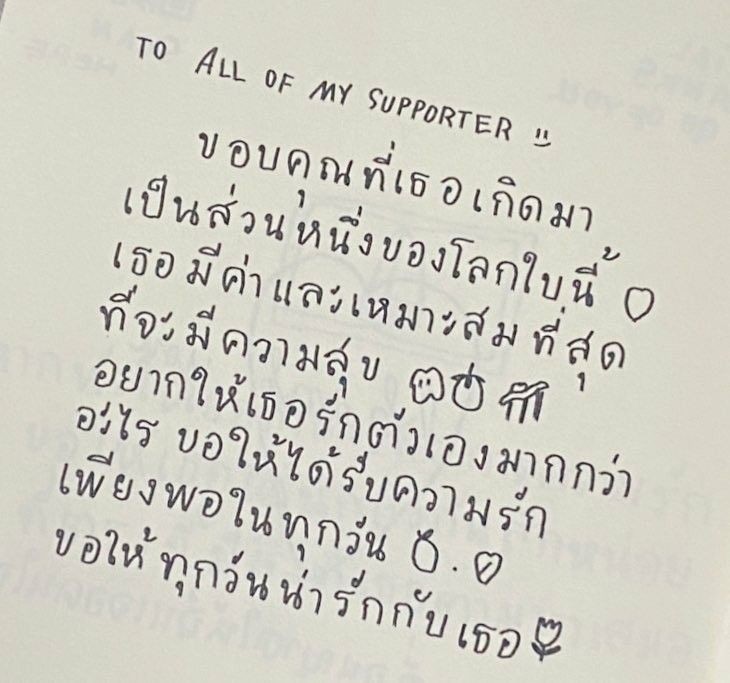 TO ALL OF MY SUPPORTER
ขอบคุณที่เธอเกิดมา
เป็นส่วนหนึ่งของโลกใบนี้
เธอมีค่าและเหมาะสมที่สุด
ที่จะมีความสุข
อยากให้เธอรักตัวเองมากกว่า
อะไร ขอให้ได้รับความรัก
เพียงพอในทุกวัน
ขอให้ทุกวันน่ารักกับเธอ